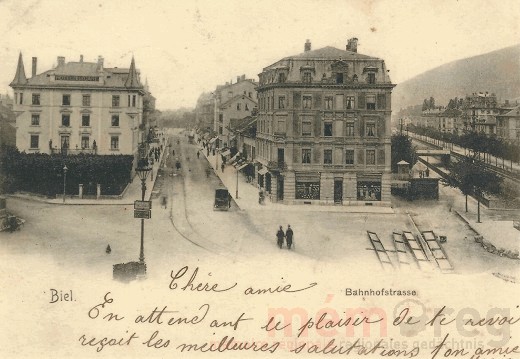 Biel.
Bahnhofstrasse
Chère amie
En attendant le plaisir de te revoir
reçoit les meilleures salutations ton amie
mémreg
regionales gedächtnis